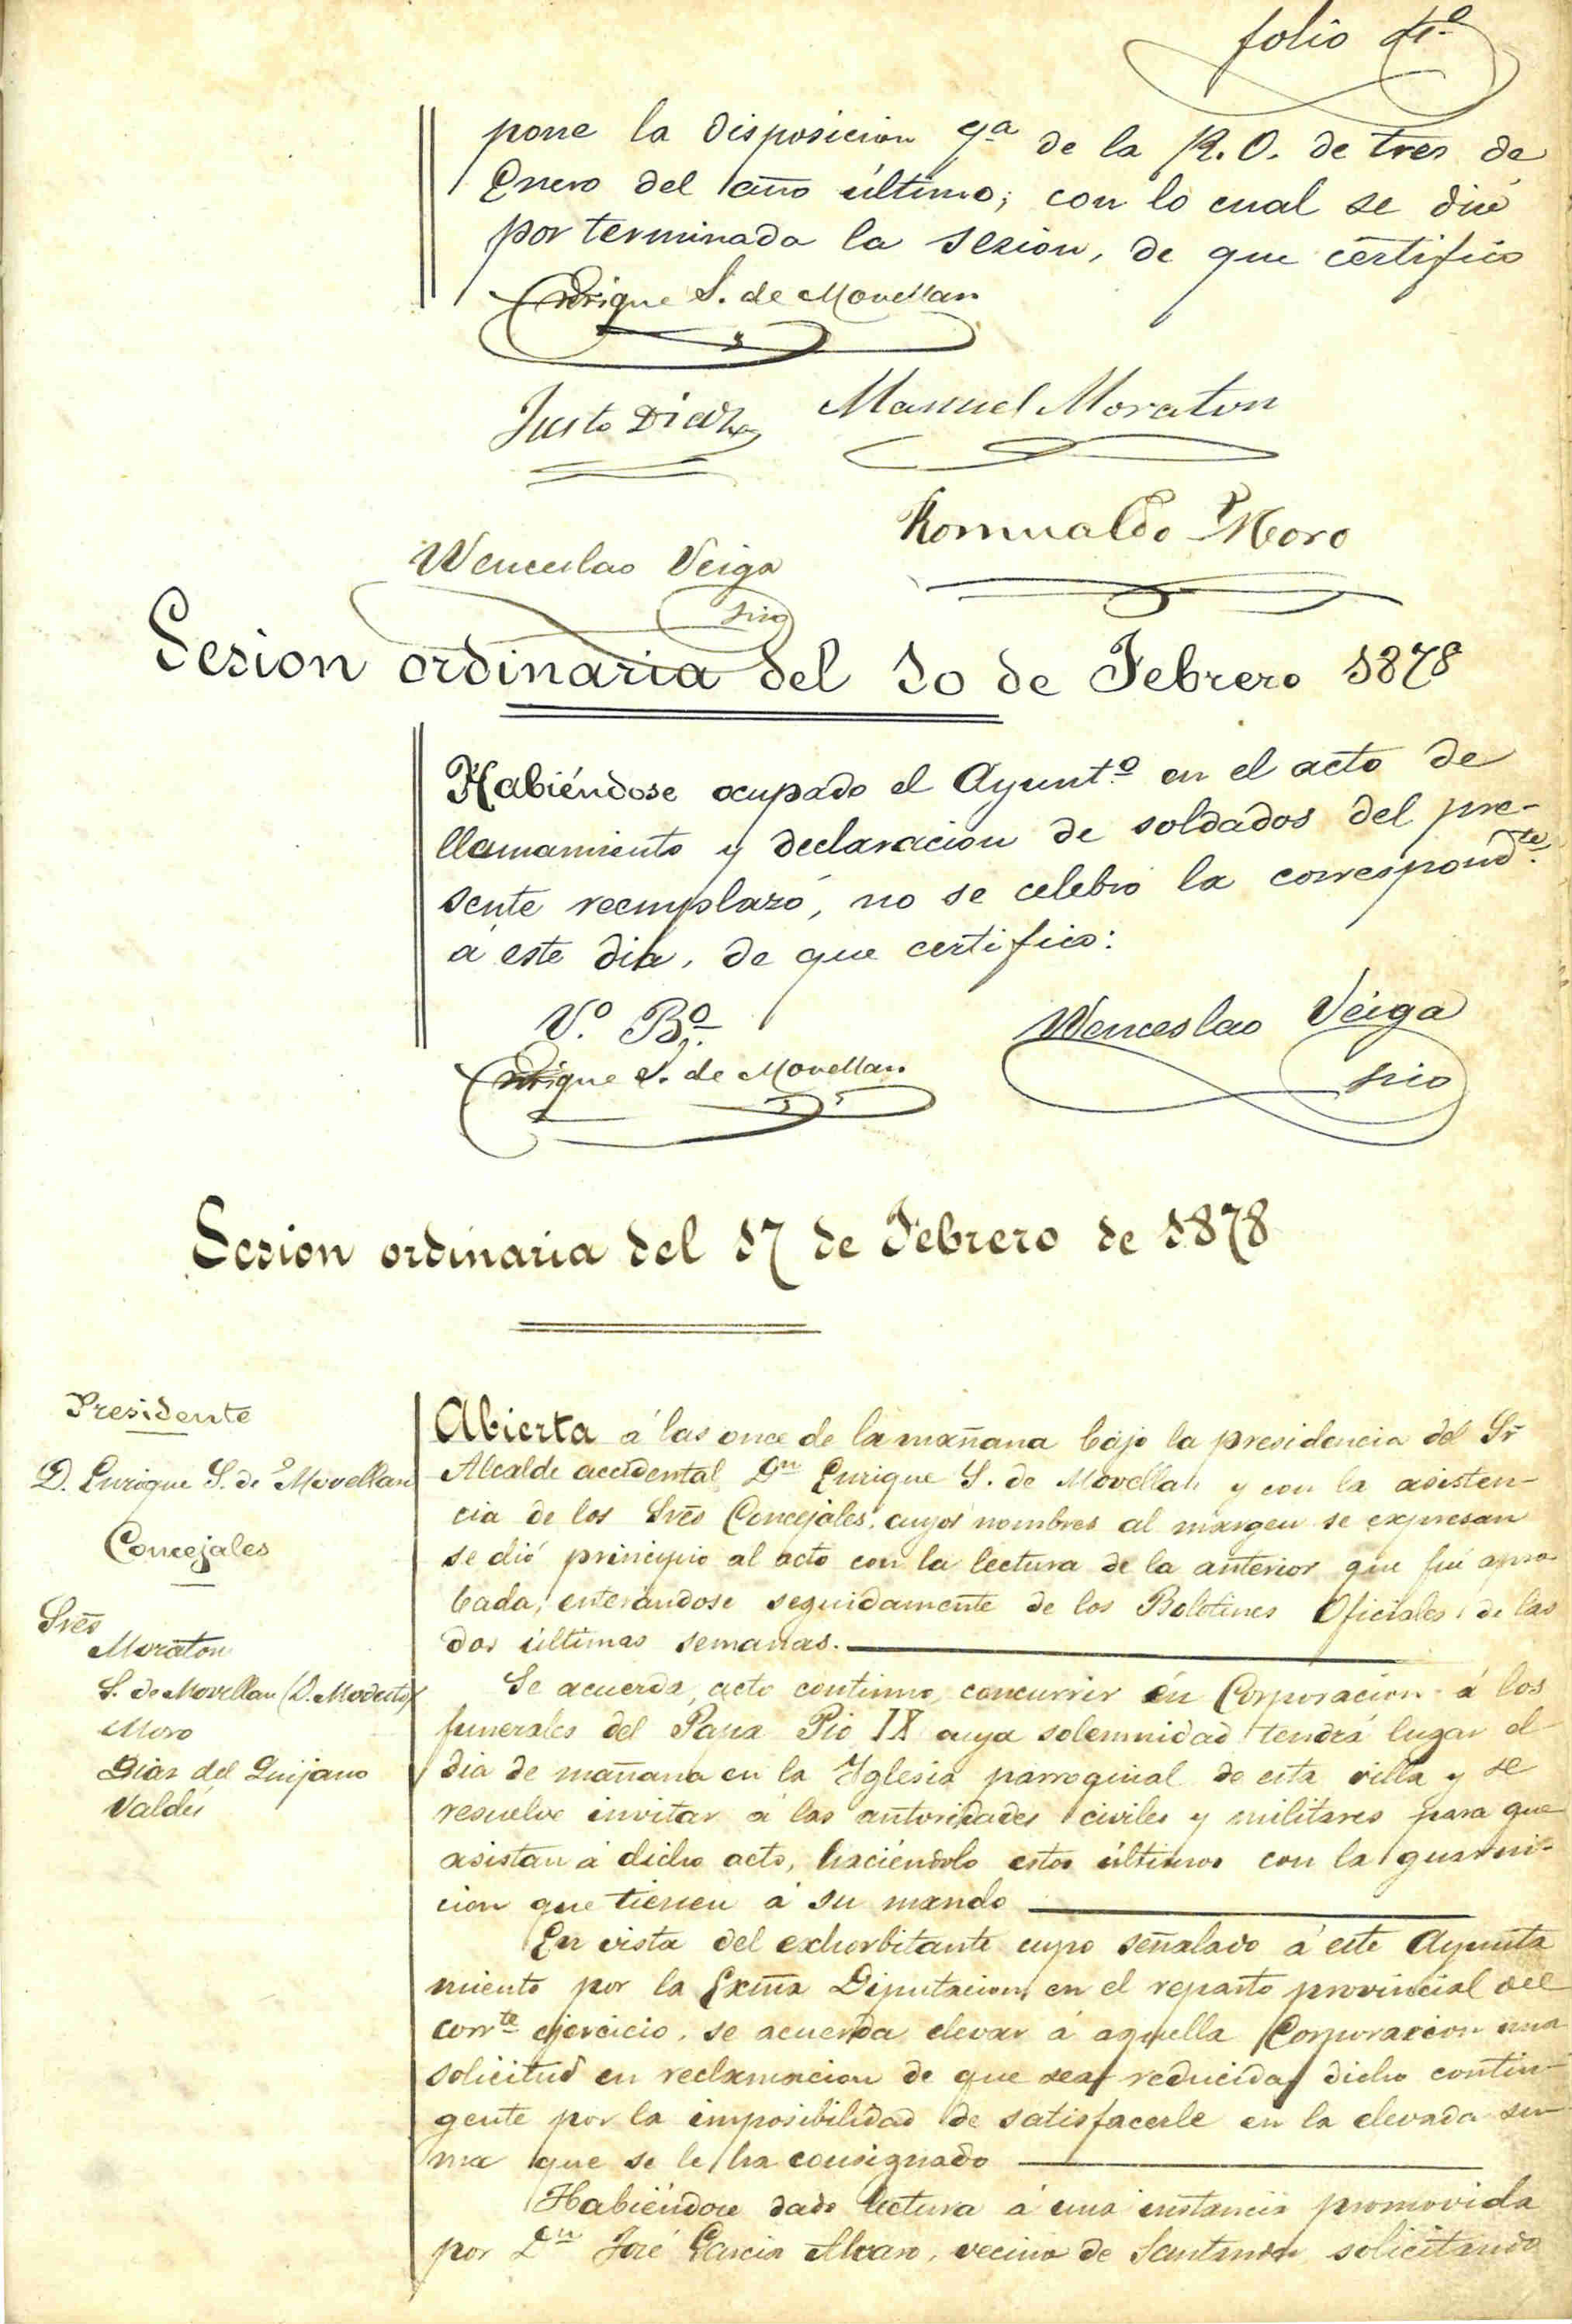 folio 4.º
pone la disposicion 9.ª de la R. O. de tres de
Enero del año último; con lo cual se dió
por terminada la sesion, de que certifico
Enrique S. de Movellan
Justo Diaz
Manuel Moraton
Romualdo Moro
Wenceslao Veiga
srio
Sesion ordinaria del 10 de Febrero 1878
Habiéndose ocupado el Ayunt.º en el acto de
llamamiento y declaracion de soldados del pre-
sente reemplazo, no se celebró la correspond.te
á este dia, de que certifico:
V.º B.º
Enrique S. de Movellan
Wenceslao Veiga
srio
Sesion ordinaria del 17 de Febrero de 1878
Presidente
D. Enrique S. de Movellan
Concejales
Sres
Moraton
S. de Movellan (D. Modesto)
Moro
Diaz del Quijano
Valdés
Abierta á las once de la mañana bajo la presidencia del Sr
Alcalde accidental Dn Enrique S. de Movellan y con la asisten-
cia de los Sres Concejales cuyos nombres al margen se expresan
se dió principio al acto con la lectura de la anterior que fué apro-
bada, enterandose seguidamente de los Boletines Oficiales de las
dos últimas semanas.
Se acuerda, acto continuo, concurrir en Corporacion á los
funerales del Papa Pio IX cuya solemnidad tendrá lugar el
dia de mañana en la Yglesia parroquial de esta villa y se
resuelve invitar á las autoridades civiles y militares para que
asistan á dicho acto, haciéndolo estos últimos con la guarni-
cion que tienen á su mando
En vista del exhorbitante cupo señalado á este Ayunta
miento por la Exma Diputacion en el reparto provincial del
corrte ejercicio, se acuerda elevar á aquella Corporacion una
solicitud en reclamacion de que sea reducida dicho contin-
gente por la imposibilidad de satisfacerle en la elevada su-
ma que se le ha consignado
Habiéndose dado lectura á una instancia promovida
por Dn José Garcia Alvaro, vecino de Santander solicitando